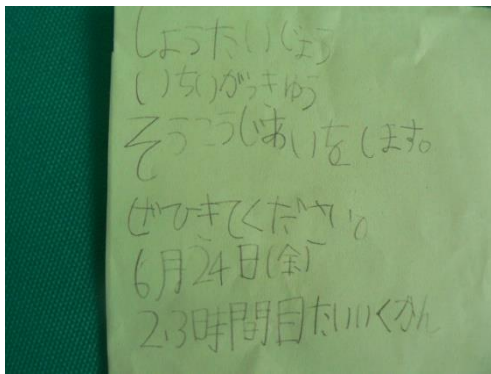 しょうたいじょう
いちいがっきゅう
そうこうじあいをします。
ぜひきてください。
6月24日(金)
2.3時間目たいいくかん